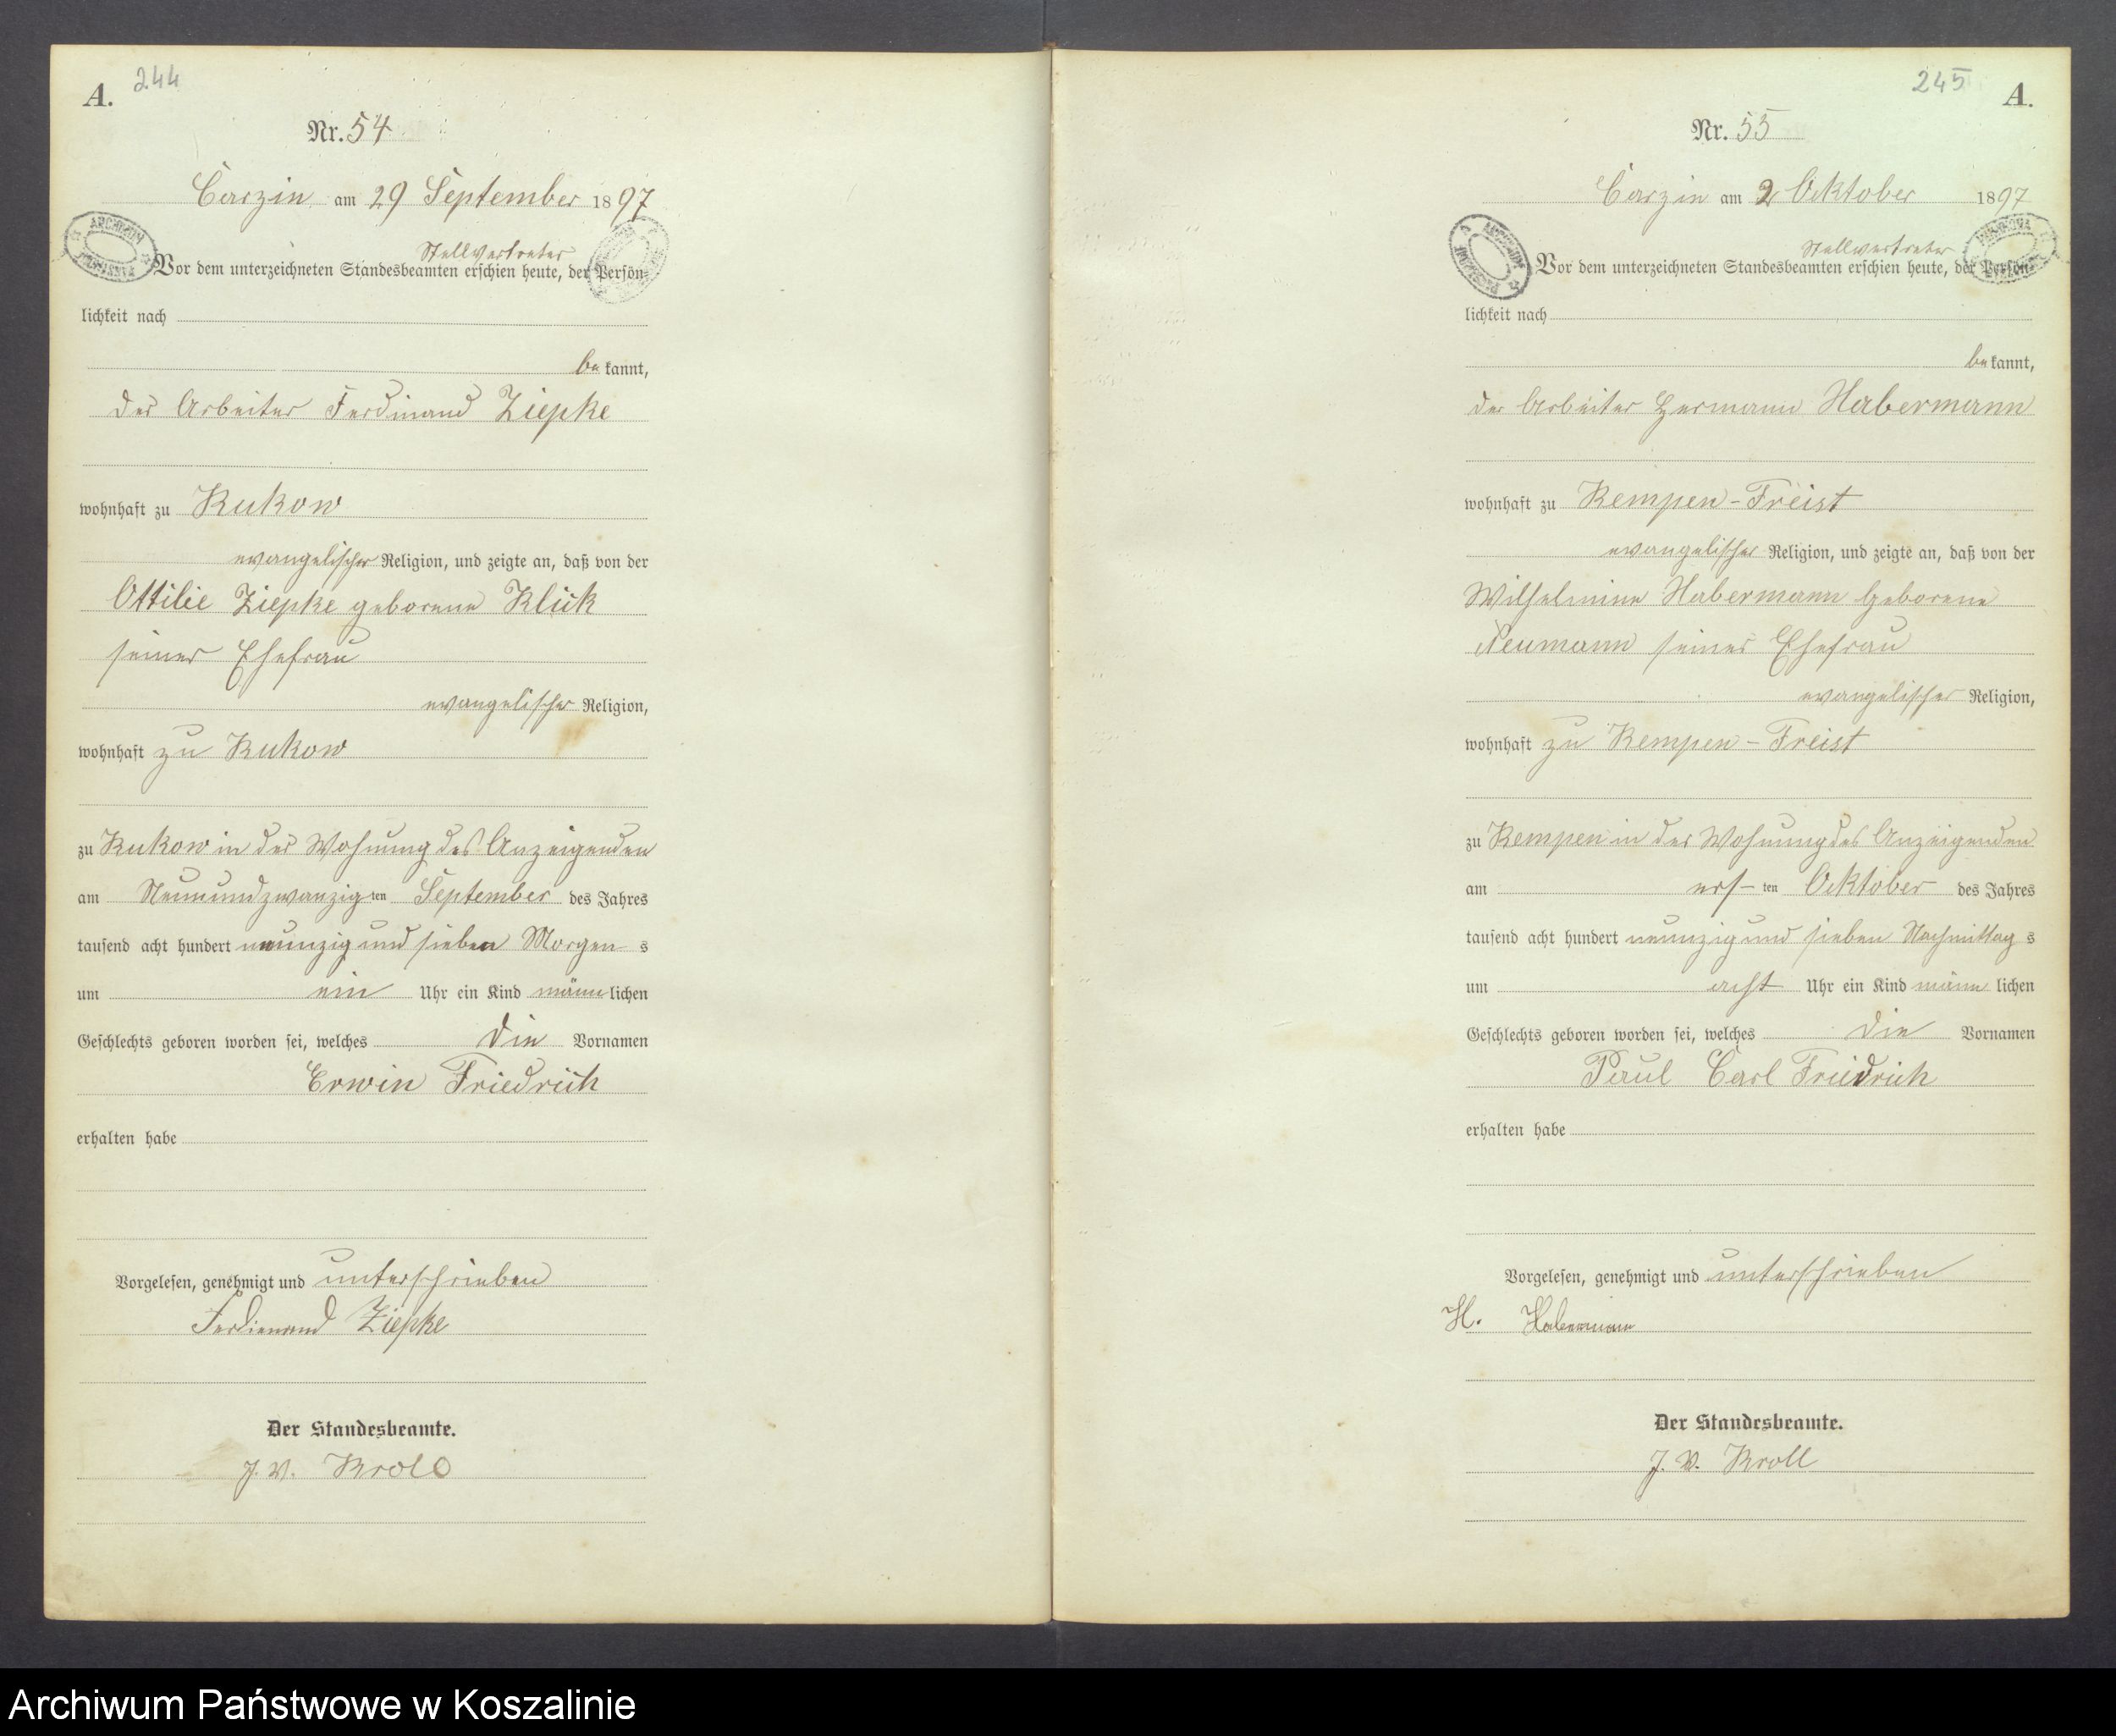 A. 244
Nr. 54
Carzin am 29 September 1897
Stellvertreter
Vor dem unterzeichneten Standesbeamten erschien heute, der Persön-
lichkeit nach
be kannt,
der Arbeiter Ferdinand Ziepke
wohnhaft zu Kukow
evangelischer Religion, und zeigte an, daß von der
Ottilie Ziepke geborene Klück
seiner Ehefrau
evangelischer Religion,
wohnhaft zu Kukow
zu Kukow in der Wohnung des Anzeigenden
am Neunundzwanzig ten September des Jahres
tausend acht hundert neunzig und sieben Morgen s
um ein Uhr ein Kind männ lichen
Geschlechts geboren worden sei, welches die Vornamen
Erwin Friedrich
erhalten habe
Vorgelesen, genehmigt und unterschrieben
Ferdienand Ziepke
Der Standesbeamte.
J. V. Kroll
245 A.
Nr. 55
Carzin am 2 Oktober 1897
Stellvertreter
Vor dem unterzeichneten Standesbeamten erschien heute, der Persön-
lichkeit nach
be kannt,
der Arbeiter Hermann Habermann
wohnhaft zu Kempen-Freist
evangelischer Religion, und zeigte an, daß von der
Wilhelmine Habermann geborene
Neumann seiner Ehefrau
evangelischer Religion,
wohnhaft zu Kempen-Freist
zu Kempen in der Wohnung des Anzeigenden
am ers ten Oktober des Jahres
tausend acht hundert neunzig und sieben Nachmittag s
um acht Uhr ein Kind männ lichen
Geschlechts geboren worden sei, welches die Vornamen
Paul Carl Friedrich
erhalten habe
Vorgelesen, genehmigt und unterschrieben
H. Habermann
Der Standesbeamte.
J. V. Kroll
Archiwum Państwowe w Koszalinie